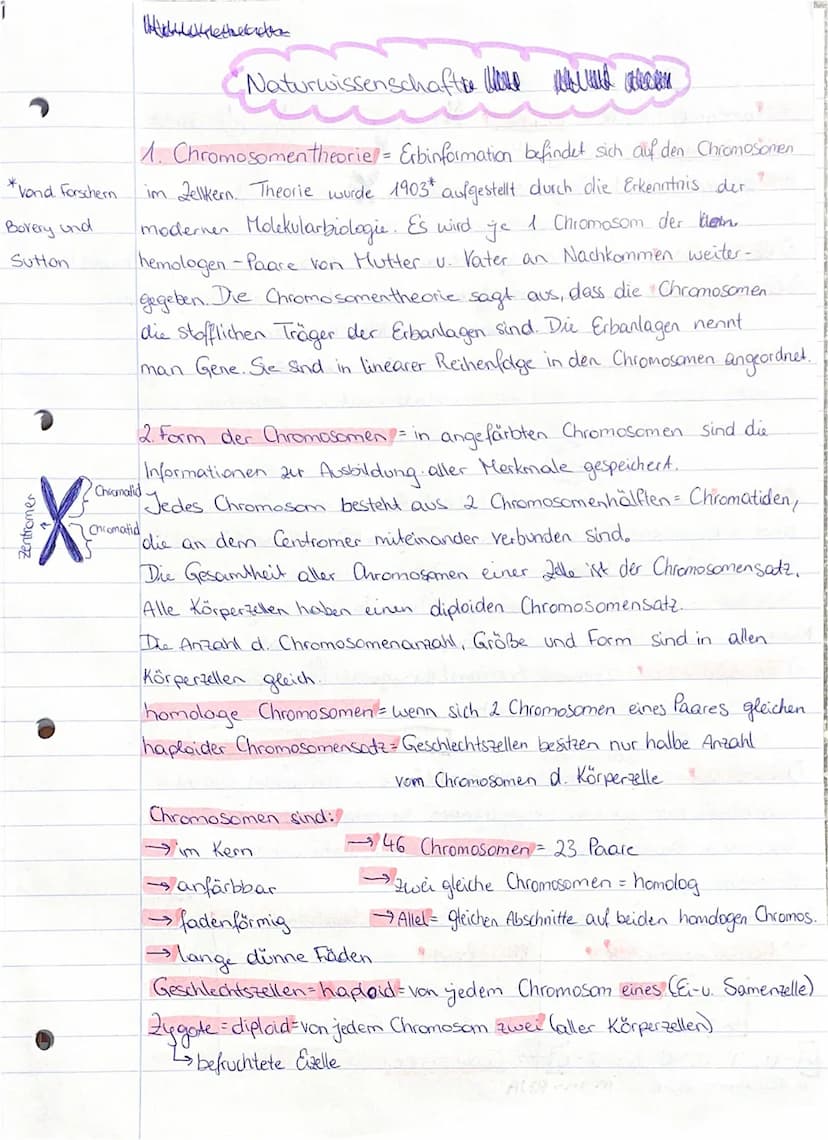 Naturwissenschaft
1. Chromosomentheorie = Erbinformation befindet sich auf den Chromosomen
im Zellkern. Theorie wurde 1903* aufgestellt durch die Erkenntnis der
modernen Molekularbiologie. Es wird je 1 Chromosom der
hemologen - Paare von Mutter u. Vater an Nachkommen weiter-
gegeben. Die Chromosomentheorie sagt aus, dass die Chromosomen
die stofflichen Träger der Erbanlagen sind. Die Erbanlagen nennt
man Gene. Sie sind in linearer Reihenfolge in den Chromosomen angeordnet.
*vond Forschern
Bovery und
Sutton
2. Form der Chromosomen = in angefärbten Chromosomen sind die
Informationen zur Ausbildung aller Merkmale gespeichert.
Jedes Chromosom besteht aus 2 Chromosomenhälften = Chromatiden,
die an dem Centromer miteinander verbunden sind.
Die Gesamtheit aller Chromosomen einer Zelle ist der Chromosomensatz.
Alle Körperzellen haben einen diploiden Chromosomensatz.
Die Anzahl d. Chromosomenanzahl, Größe und Form sind in allen
Körperzellen gleich.
Zentromer
Chromatid
Chromatid
homologe Chromosomen = wenn sich 2 Chromosomen eines Paares gleichen
haploider Chromosomensatz = Geschlechtszellen besitzen nur halbe Anzahl
vom Chromosomen d. Körperzelle
Chromosomen sind:
→ im Kern
→ anfärbbar
→ fadenförmig
→ lange dünne Fäden
→ 46 Chromosomen = 23 Paare
→ zwei gleiche Chromosomen = homolog
→ Allel = gleichen Abschnitte auf beiden homologen Chromos.
Geschlechtszellen = haploid = von jedem Chromosom eines (Ei- u. Samenzelle)
Zygote = diploid = von jedem Chromosom zwei (aller Körperzellen)
↳ befruchtete Eizelle